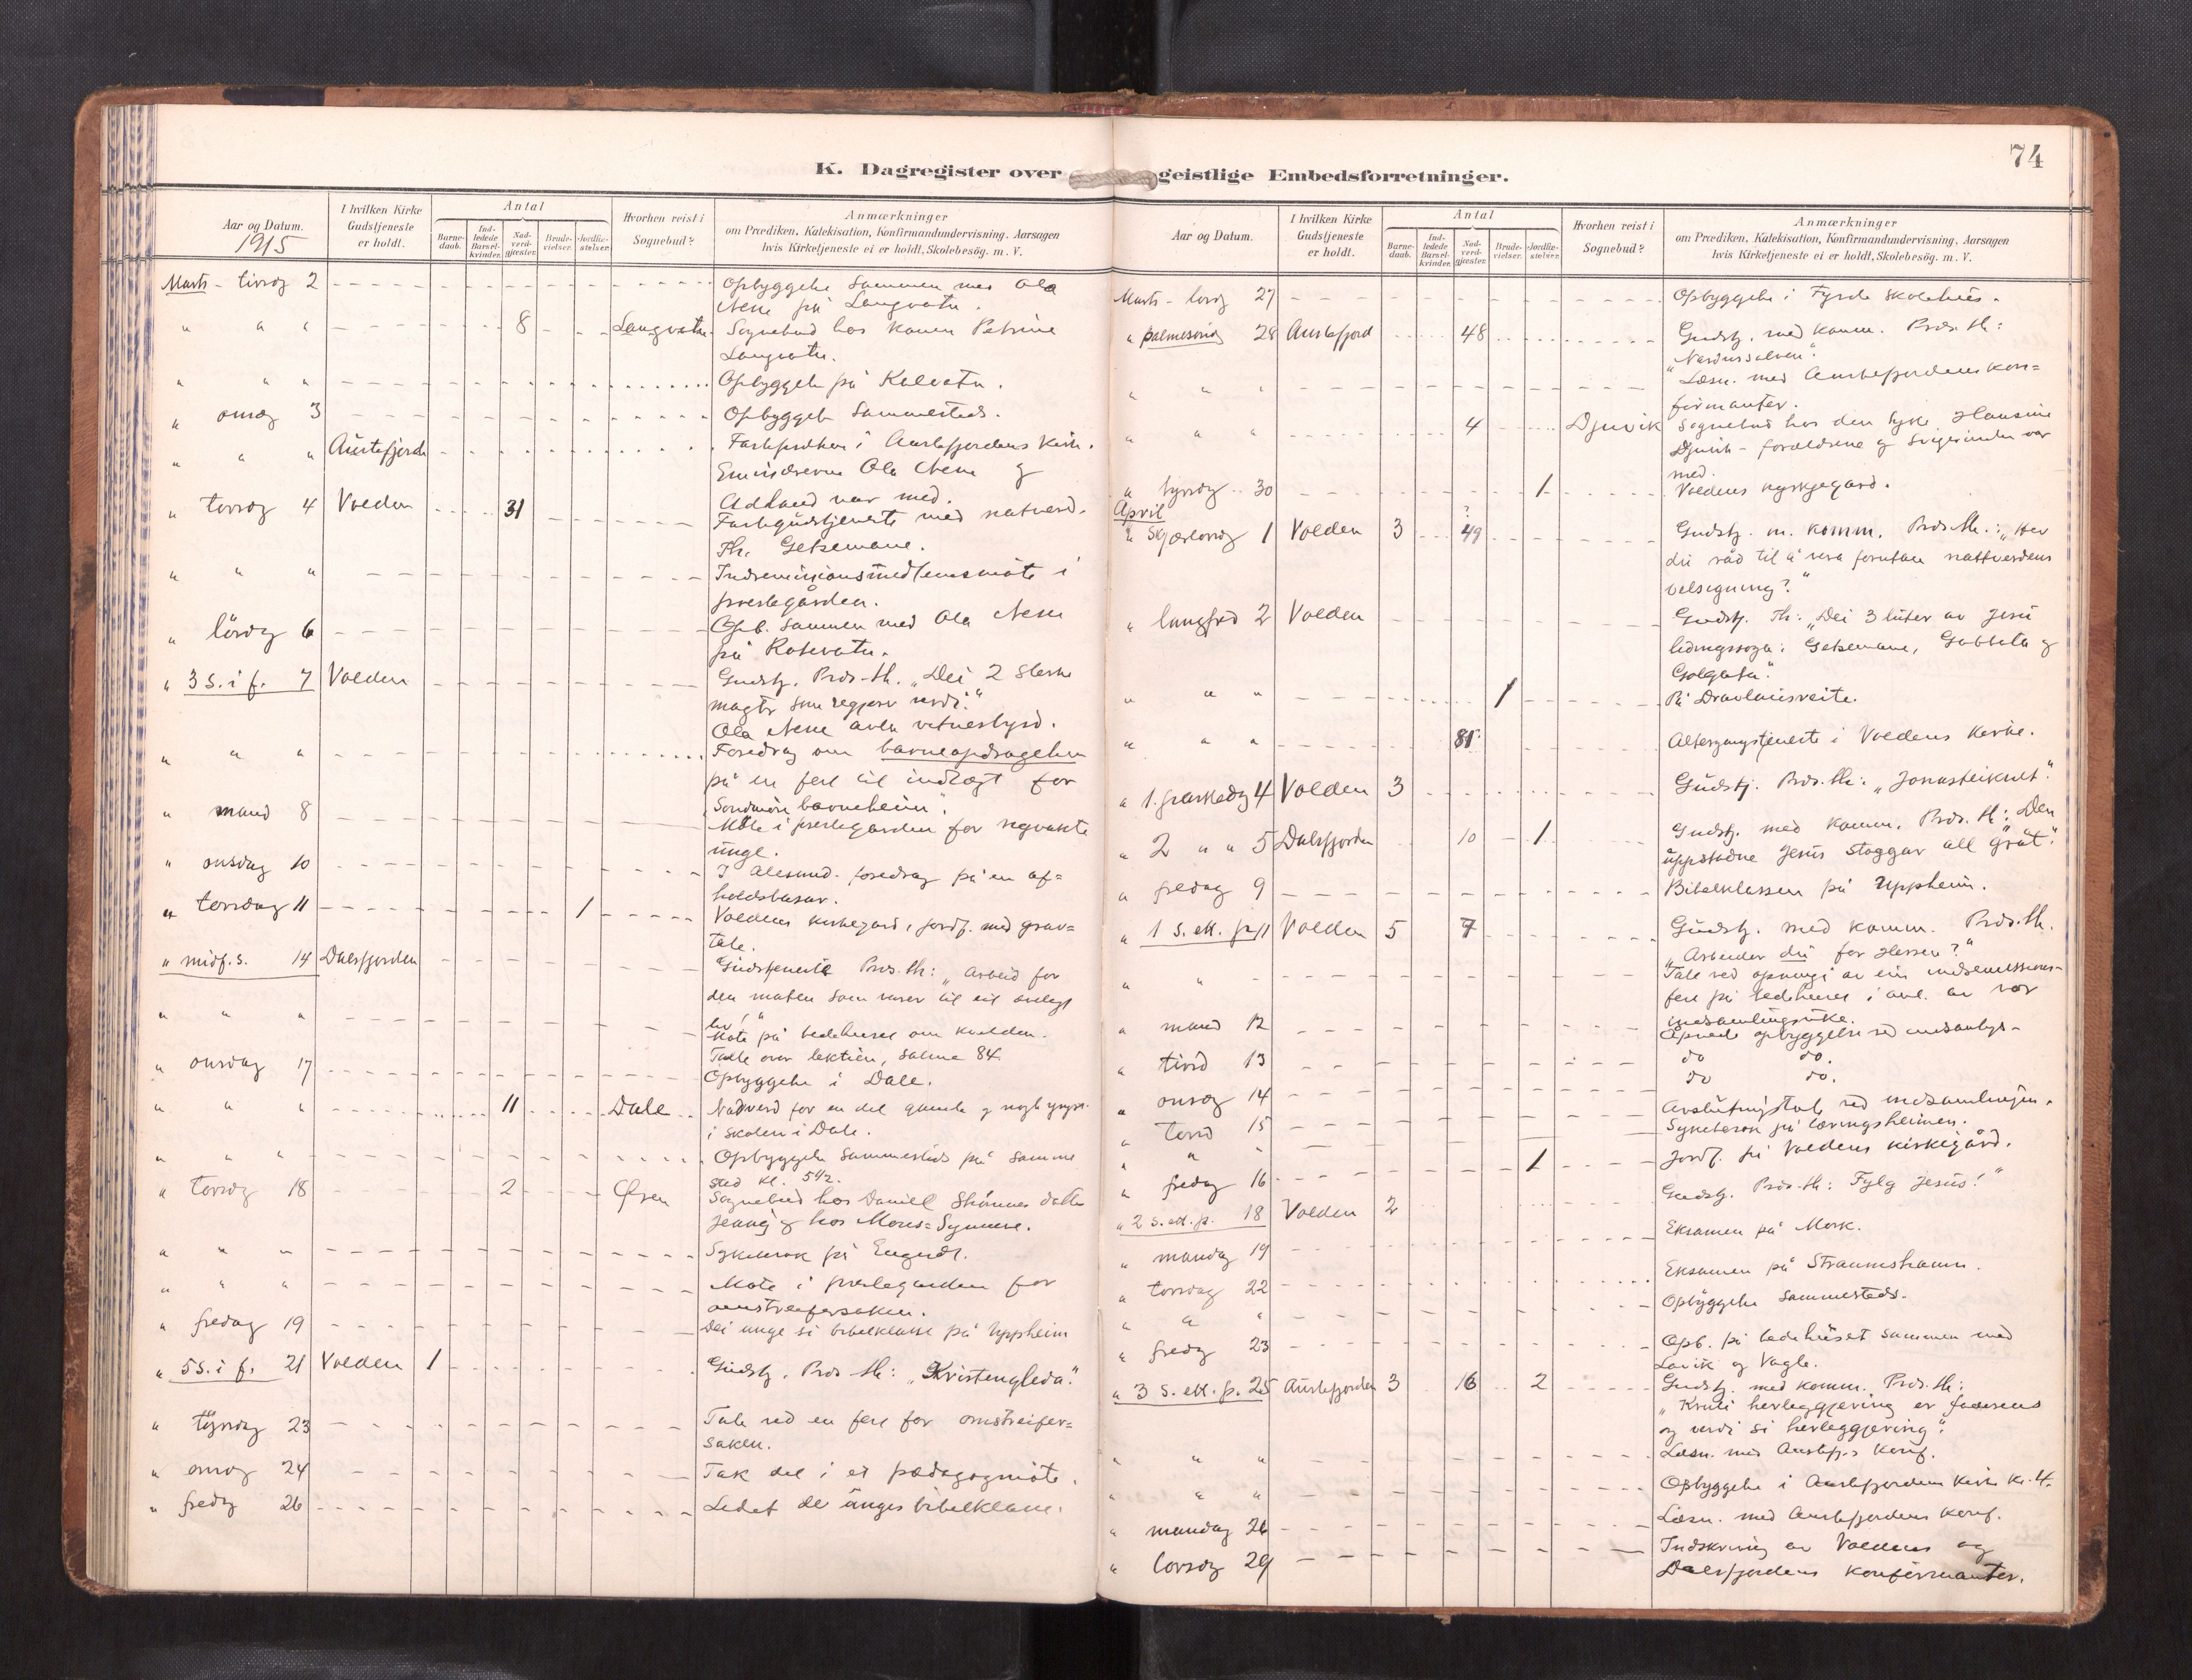 74
K. Dagregister over geistlige Embedsforretninger.
Aar og Datum.
1915
I hvilken Kirke Gudstjeneste er holdt.
Antal
Barnedaab.
Indledede Barselkvinder.
Nadverdgjester.
Brudevielser.
Jordfæstelser.
Hvorhen reist i Sognebud?
Anmærkninger
om Prædiken, Katekisation, Konfirmandundervisning. Aarsagen
hvis Kirketjeneste ei er holdt, Skolebesög. m. V.
Marts - tirsdg 2 Opbyggelse sammen med Ola
Nene på Langvatn.
" " " 8 Langvatn. Sognebud hos konen Petrine
Langvatn.
" " " Opbyggelse på Kalvatn.
" onsdg 3 Opbyggelse sammesteds.
" " " Austefjorden Fasteprdken i Austefjordens kirke.
Emisærerne Ola Nene og
Adland var med.
" torsdg 4 Volden 31 Fastegudstjeneste med natverd.
Th. Getsemane.
" " " Indremisionsmedlemsmöte i
prestegården.
" lördg 6 Opb. sammen med Ola Nene
på Rotevatn.
" 3 S. i f. 7 Volden Gudstj. Prds. th. "Dei 2 sterke
magter som regjerer verdi."
Ola Nene avla vitnesbyrd.
" " " Foredrag om barneopdragelsen
på en fest til indtægt for
"Sondmöre barneheim".
" mand 8 Möte i prestegarden for nyvakte
unge.
" onsdag 10 I Alesund. foredrag på en af=
holdsbasar.
" torsdag 11 1 Voldens kirkegard, jordf. med grav=
tale.
" midf. s. 14 Dalsfjorden Gudstjeneste Prds. th: "Arbeid for
den maten som varer til eit ævelegt
liv!"
" " " Möte på bedehuset om kvelden.
Talte over lektien, salme 84.
" onsdag 17 Opbyggelse i Dale.
" " " 11 Dale Nadverd for en del gamle og nogle yngre
i skolen i Dale.
" " " Opbyggelse sammesteds på samme
sted kl. 5 1/2.
" torsdg 18 2 Sognebud hos Daniel datter
Jenny og hos Mons=Synnøve.
" " " Sykebesøk på
" " " Möte i prestegarden for
omstreifersaken.
" fredag 19 Dei unge si bibelklasse på Uppheim
" 5 S. i f. 21 Volden 1 Gudstj. Prds th: "Kristengleda."
" tysdag 23 Tale ved en fest for omstreifer=
saken.
" onsdg 24 Tak del i et pædagogmöte.
" fredg 26 Ledet de unges bibelklasse.
Aar og Datum.
I hvilken Kirke Gudstjeneste er holdt.
Antal
Barnedaab.
Indledede Barselkvinder.
Nadverdgjester.
Brudevielser.
Jordfæstelser.
Hvorhen reist i Sognebud?
Anmærkninger
om Prædiken, Katekisation, Konfirmandundervisning, Aarsagen
hvis Kirketjeneste ei er holdt, Skolebesög. m. V.
Marts - lordg 27 Opbyggelse i Fyrde skolehus.
" palmesönd 28 Austefjord 48 Gudstj. med komm. Prds. th:
"Nardussalven".
" " " Læsn. med Austefjordens kon=
firmanter.
" " " 4 Djuvik Sognebud hos den syke Hansine
Djuvik - foreldrene og svigerinden var
med.
" tysdg 30 1 Voldens kyrkjegard.
April
" Skjærtorsdg 1 Volden 3 ? 49 Gudstj. m. komm. Prds. th.: "Hev
du råd til å vera forutan nattverdens
velsegning?"
" langfred 2 Volden Gudstj. Th: "Dei 3 luter av Jesu
lidingssoga: Getsemane, Gabbata og
Golgata."
" " " 1 På Dravlausreite.
" " " 81 Altergangstjeneste i Voldens kirke.
" 1. påskedg 4 Volden 3 Gudstj. Prds. th: "Jonasteiknet."
" 2 " " 5 Dalsfjorden 10 1 Gudstj. med komm. Prds. th: "Den
uppstadne Jesus stoggar all gråt."
" fredag 9 Bibelklassen på Uppheim.
" 1 s. ett. p. 11 Volden 5 7 Gudstj. med komm. Prds. th.
"Arbeider du for Herren?"
" " - Tale ved opningi av ein indremissions-
fest på bedehuset i anl. av vor
indsamlingsuke.
" mand 12 Opnede opbyggelse ved indsamlgs-
" tirsd 13 do do.
" onsdg 14 do do.
" torsd 15 Avslutningstale ved indsamlingen.
" " " Sykebesøk på læringsheimen.
" fredag 16 1 Jordf. på Voldens kirkegård.
" 2 s. ett. p. 18 Volden 2 Gudstj. Prds. th: Fylg Jesus!"
" mandag 19 Eksamen på Mork.
" torsdag 22 Eksamen på Straumshamn.
" " " Opbyggelse sammesteds.
" fredg 23 Opb. på bedehuset sammen med
Lavik og Vagle.
" 3 s. ett. p. 25 Austefjorden 3 16 2 Gudstj. med komm. Prds. th:
"Kristi herleggjering er faderens
og verdi si herleggjering".
" " " Læsn. med Austefj.s konf.
" " " Opbyggelse i Austefjordens kirke kl. 4.
" mandag 26 Læsn. med Austefjordens konf.
" torsdg 29 Indskrivning av Voldens og
Dalsfjordens konfirmanter.